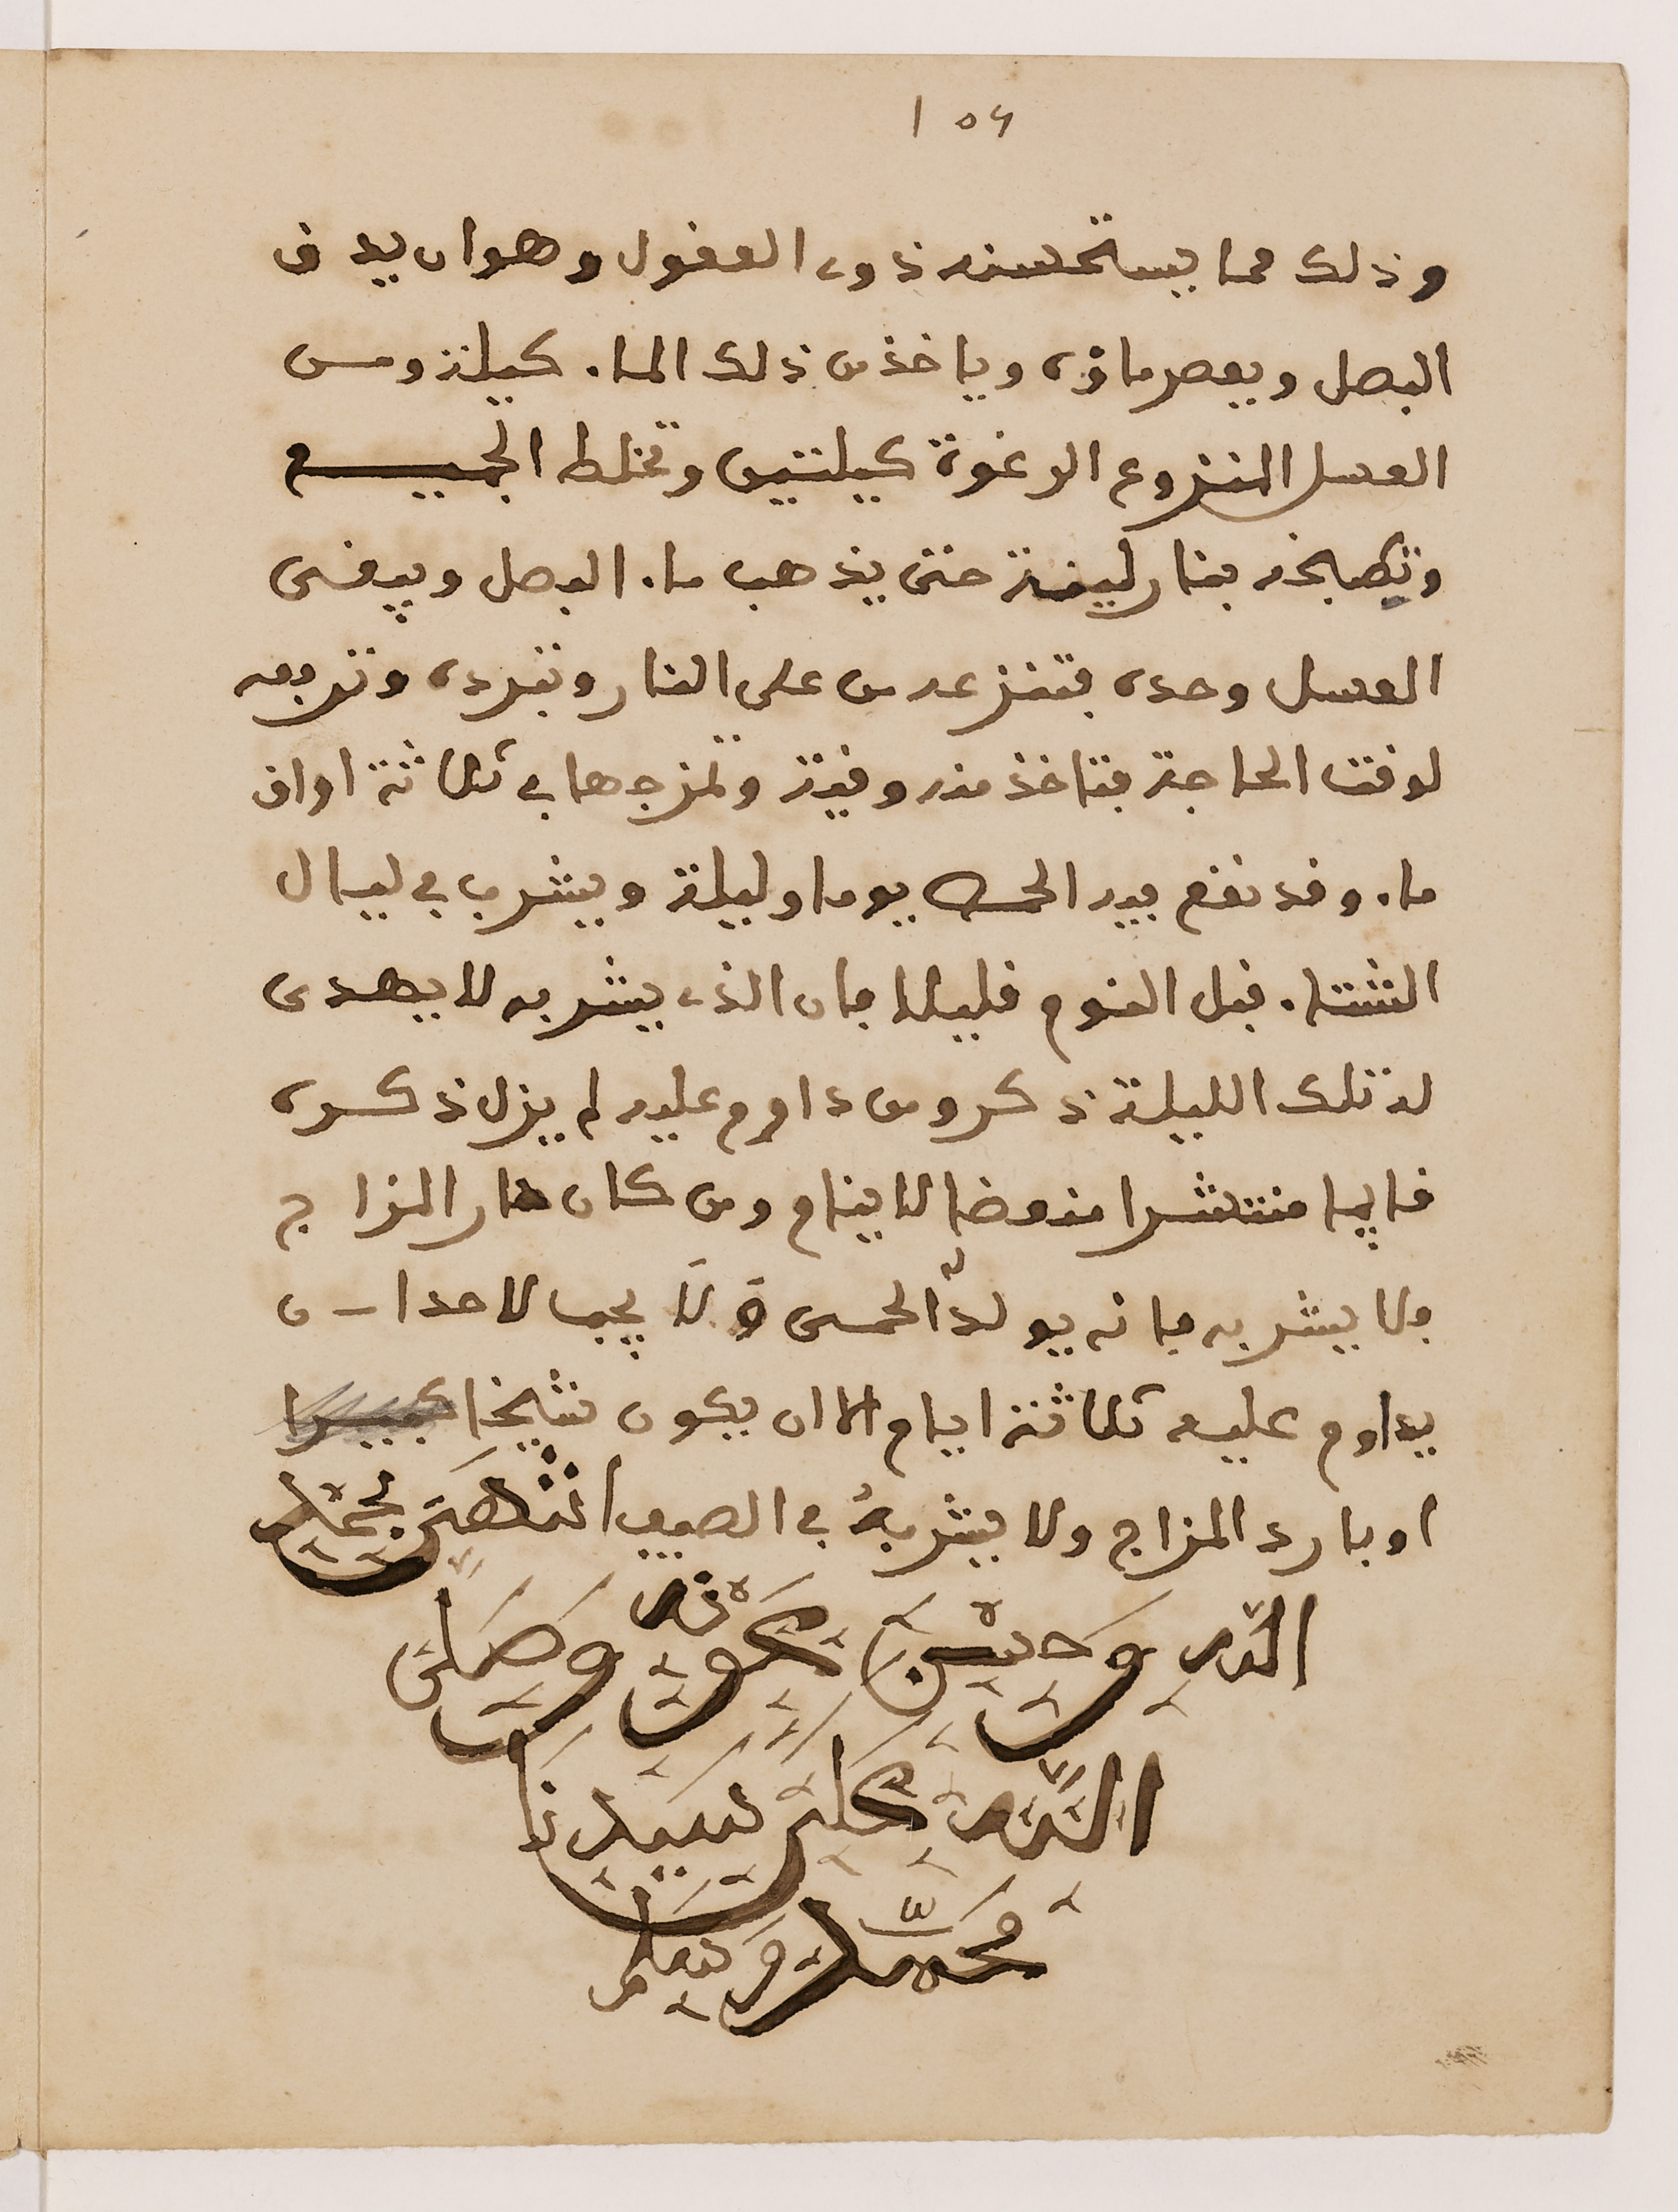 156
وذلك مما يستحسنه ذوى العقول وهو ان يدق
البصل ويعصر ماؤه وياخذ من ذلك الماء كيلة ومن
العسل المنزوع الرغوة كيلتين وتخلط الجميع
وتطبخه بنار لينة حتى يذهب ماء البصل ويبقى
العسل وحده فتنزعه من على النار وتبرده وترفعه
لوقت الحاجة فتاخذ منه وقية وتمزجها في ثلاثة اواق
ماء وقد نقع فيه الحمص يوما وليلة ويشرب في ليال
الشتاء قبل النوم قليلا فان الذى يشربه لا يهدى
له تلك الليلة ذكر ومن داوم عليه لم يزل ذكره
قايما منتشرا منعضا لا ينام ومن كان حار المزاج
فلا يشربه فانه يولد الحمى ولا يجب لاحدا ن
يداوم عليه ثلاثة ايام الا ان يكون شيخا كبيرا
او بارد المزاج ولا يشربهُ في الصيف انتهَى بحمد
الله وحسن عونه وصلى
اللّه على سيدنا
محمّد وسلم